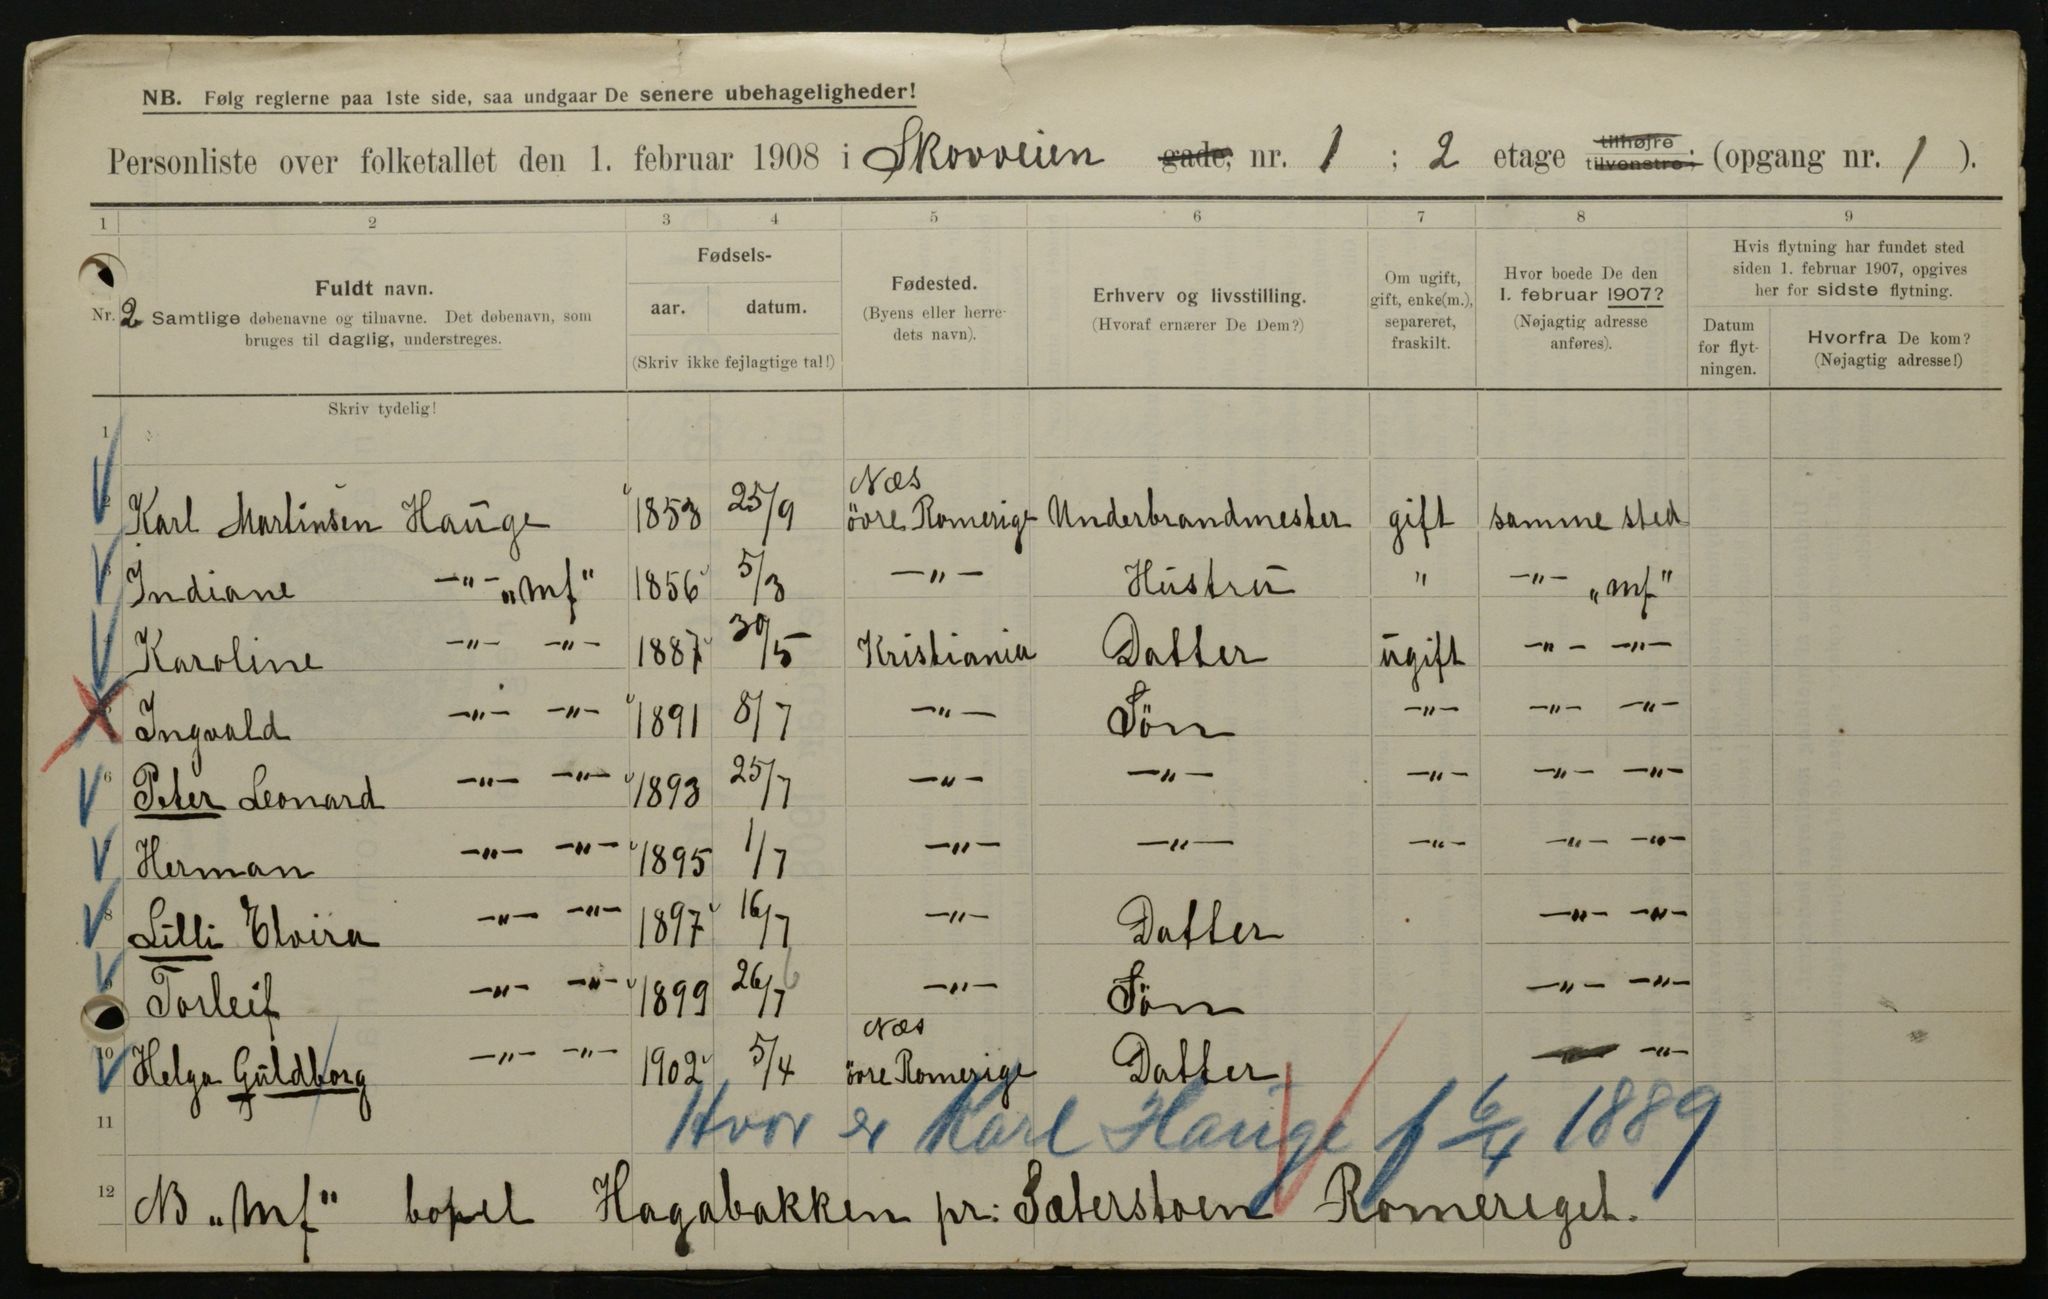 NB. Følg reglerne paa 1ste side, saa undgaar De senere ubehageligheder!
Personliste over folketallet den 1. februar 1908 i Skovveien gade, nr. 1 ; 2 etage tilhøjre tilvenstre; (opgang nr. 1 ).
1 2 3 4 5 6 7 8 9
Nr. 2
Fuldt navn.
Samtlige døbenavne og tilnavne. Det døbenavn, som
bruges til daglig, understreges.
Fødsels-
aar. datum.
(Skriv ikke fejlagtige tal!)
Fødested.
(Byens eller herre-
dets navn).
Erhverv og livsstilling.
(Hvoraf ernærer De Dem?)
Om ugift,
gift, enke(m.),
separeret,
fraskilt.
Hvor boede De den
1. februar 1907?
(Nøjagtig adresse
anføres).
Hvis flytning har fundet sted
siden 1. februar 1907, opgives
her for sidste flytning.
Datum
for flyt-
ningen.
Hvorfra De kom?
(Nøjagtig adresse!)
Skriv tydelig!
1
Næs
2 Karl Martinsen Hauge 1853 25/9 övre Romerige Underbrandmester gift samme sted
3 Indiane -"- "mf" 1856 5/3 -"- Hustru " -"- "mf"
4 Karoline -"- -"- 1887 30/5 Kristiania Datter ugift -"- -"-
5 Ingvald -"- -"- 1891 8/7 -"- Sön -"- -"- -"-
6 Peter Leonard -"- -"- 1893 25/7 -"- -"- -"- -"- -"-
Herman -"- -"- 1895 1/7 -"- -"- -"- -"- -"-
8 Lilli Elvira -"- -"- 1897 16/7 -"- Datter -"- -"-
Torleif -"- -"- 1899 26/7 -"- Sön -"- -"-
Næs
10 Helga Guldborg -"- -"- 1902 5/4 övre Romerige Datter -"-
11 Hvor er Karl Hauge f 6/4 1889
12 NB "mf" bopel Hagabakken pr: Sæterstoen Romeriget.